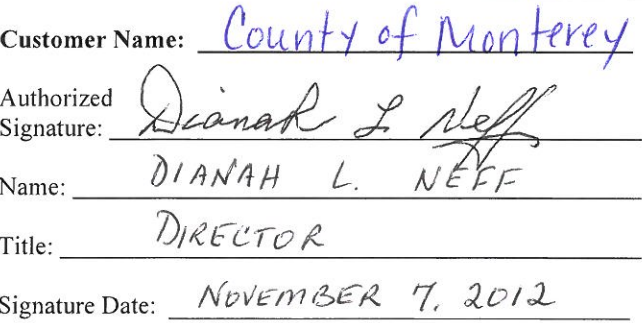 Customer Name: County of Monterey
Authorized
Signature: Dianah L. Neff
Name: DIANAH L. NEFF
Title: DIRECTOR
Signature Date: NOVEMBER 7, 2012